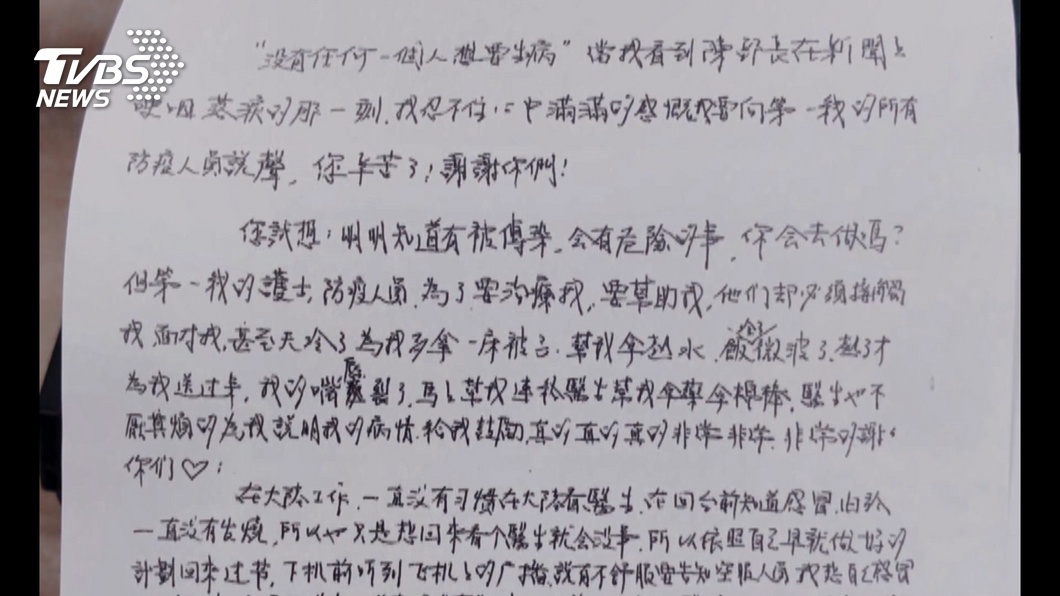 TVBS
NEWS
"没有任何一個人想要生病" 當我看到陳部長在新聞上
哽咽落淚的那一刻,我忍不住心中滿滿的感慨我要向第一線的所有
防疫人員說聲,你辛苦了!謝謝你們!
您試想:明明知道有被傳染,会有危險的事,你会去做嗎?
但第一線的護士,防疫人員,為了要治療我,要幫助我,他们却必須接觸
我面對我,甚至天冷了為我多拿一床被子.幫我拿热水.飯冷微波了.热了才
為我送过来,我的嘴唇裂了,馬上幫我連絡醫生幫我拿藥拿棉棒,醫生也不
厭其煩的為我說明我的病情.給我鼓勵,真的真的真的非常非常.非常的謝謝
你们♡!
在大陸工作,一直没有习慣在大陸看醫生,在回台前知道感冒,
一直没有发燒,所以也只是想回來看个醫生就会沒事,所以依照自己早就做好的
計劃回來过节,下机前听到飞机上的广播,說有不舒服要告知空服人員我想自己感冒